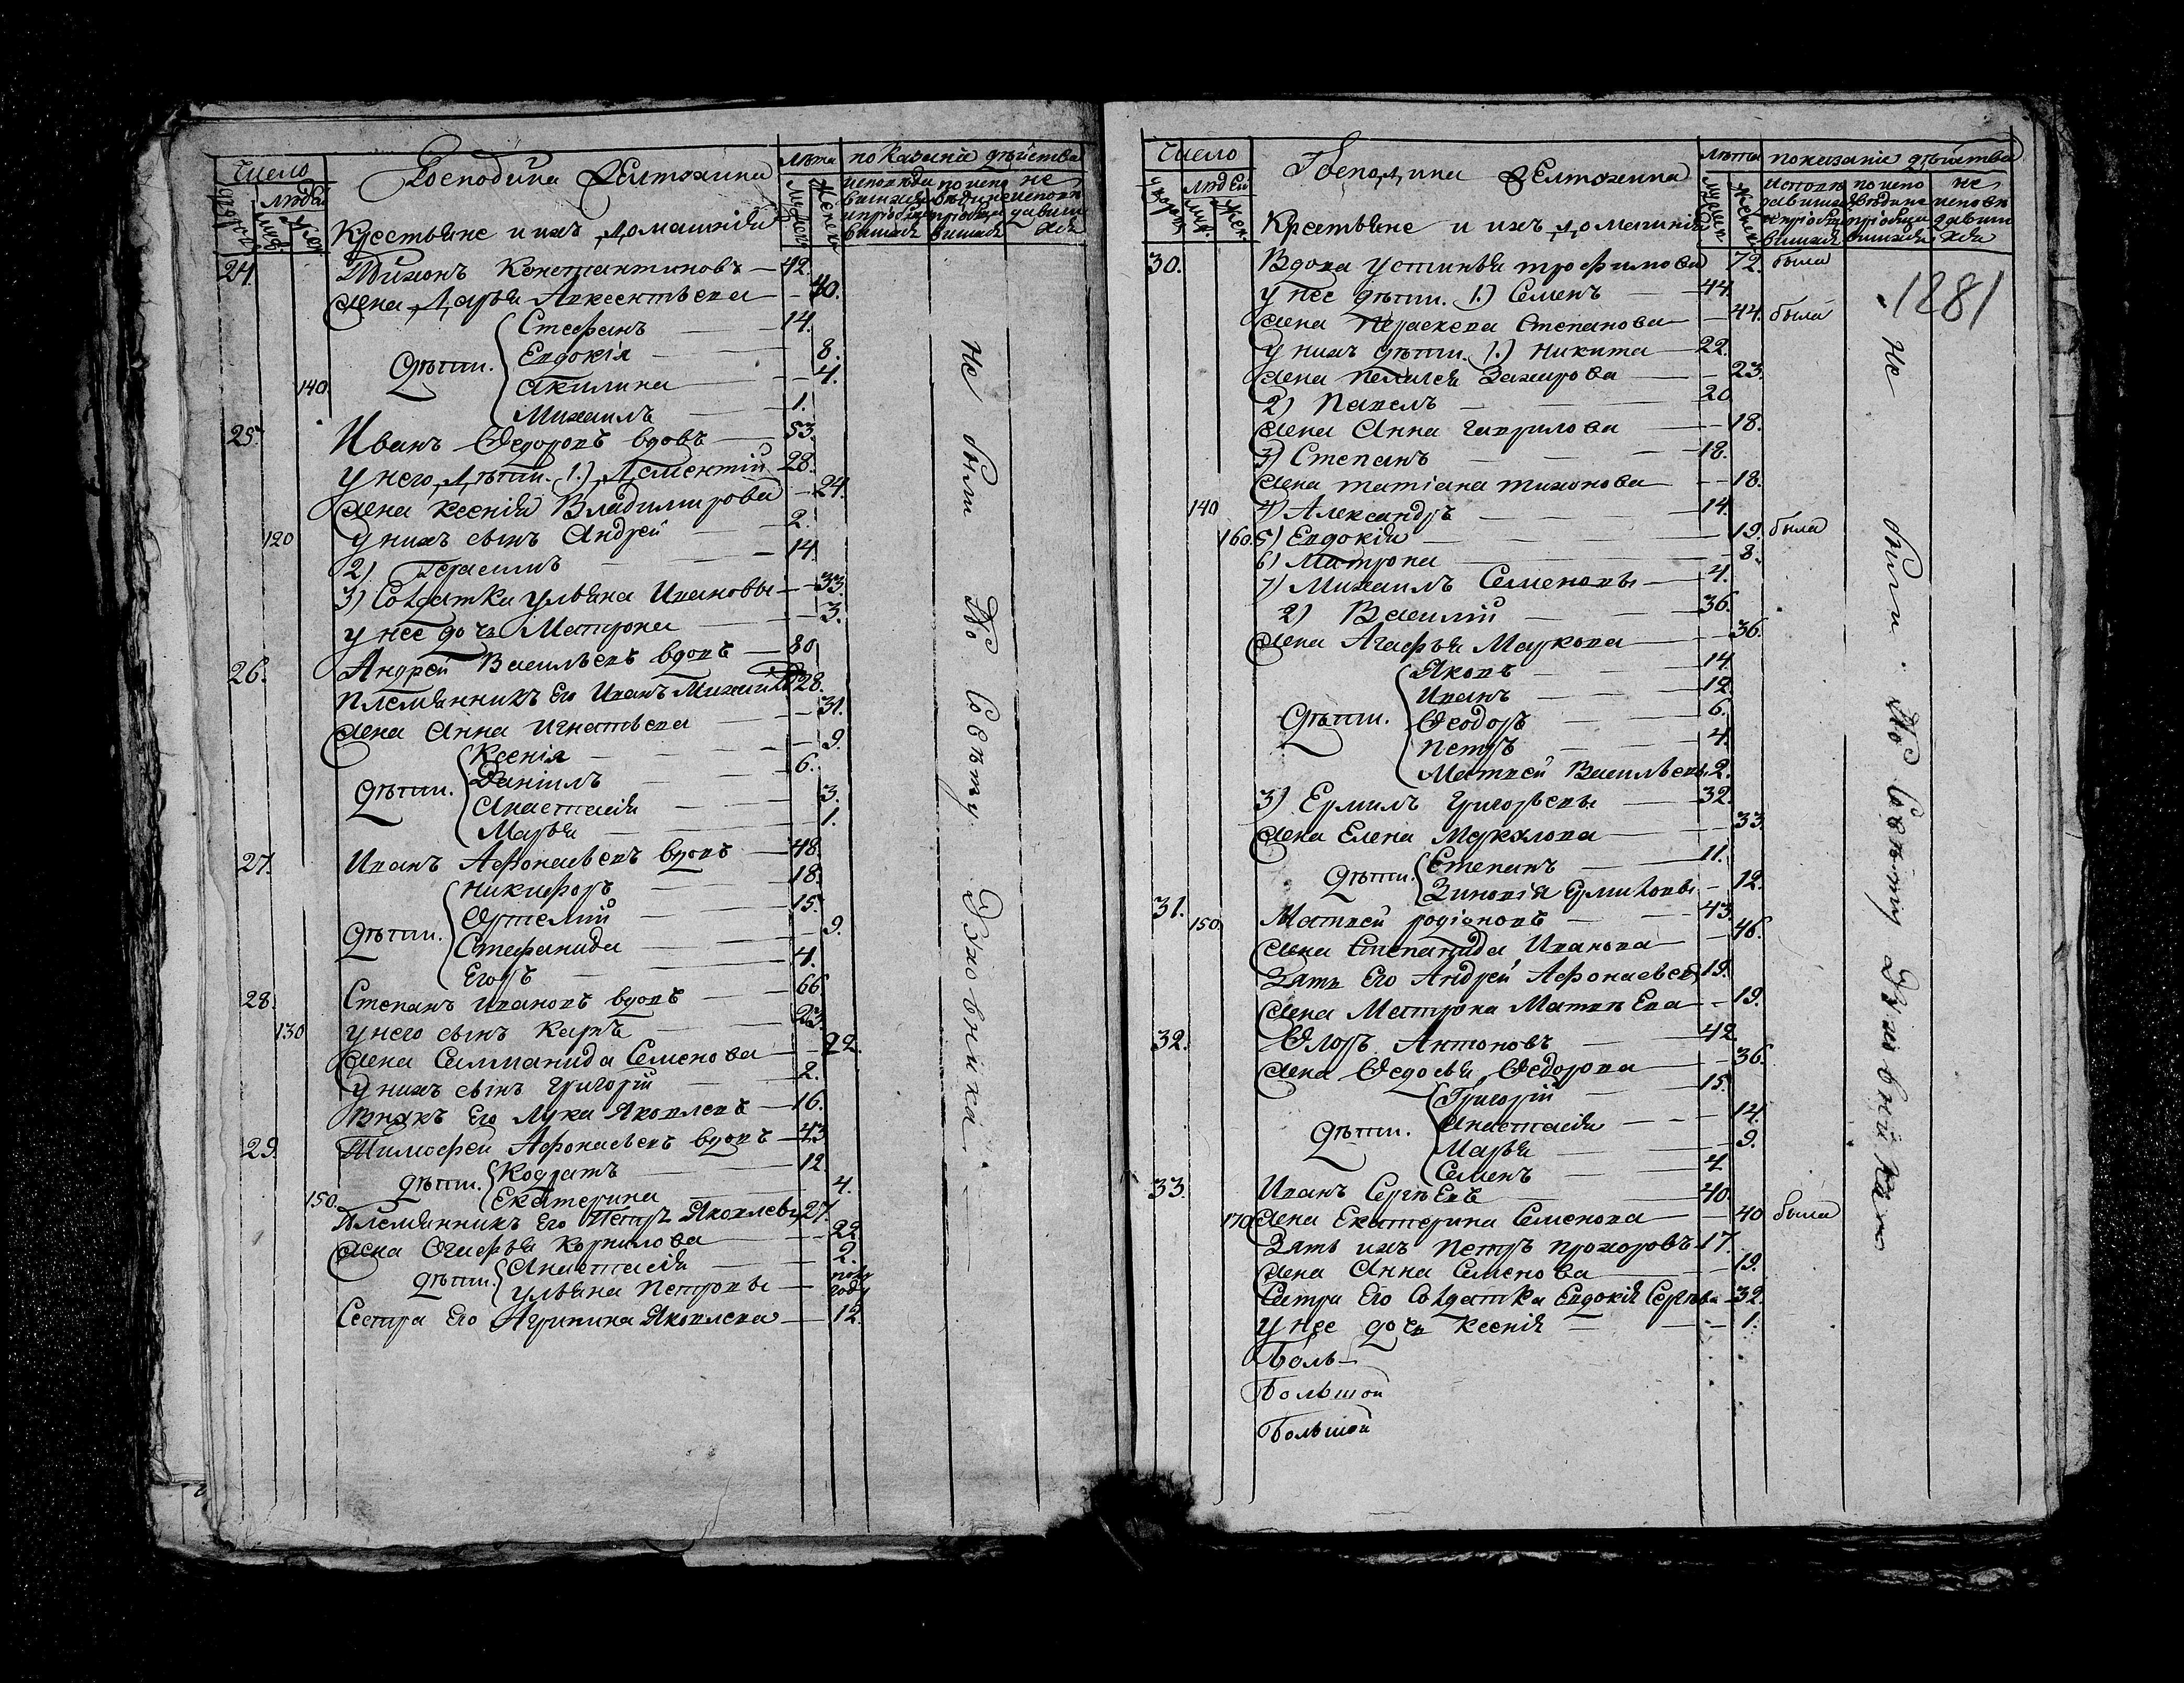 Число
Господина Желтухина
Лѣта
показаніе дѣйства
дворовъ
людей
муж.
жен.
Мужеск
Женск
исповѣдавшихся и пріобщившихся
по исповѣди не пріобщившихся
не исповѣдавшихся
Крестьяне и ихъ домашніе
24. Тихонъ Константиновъ — 42.
Жена Дарья Авксентьева — 40.
Дѣти. Стефанъ — 14.
Евдокія — 8.
140. Акилина — 4.
Михаилъ — 1.
25. Иванъ Ѳедоровъ вдовъ — 53.
у него дѣти. 1.) Дементій 28.
Жена Ксенія Владимирова — 24.
120 у нихъ сынъ Андрей — 2.
2) Герасимъ — 14.
3) Солдатка Ульяна Ивановы — 33.
у нее дочь Матрона — 3.
26. Андрей Васильевъ вдовъ — 80
Племянникъ Его Иванъ Михайл 28.
Жена Анна Игнатьева — 31.
Дѣти. Ксенія — 9.
Даніилъ — 6.
Анастасія — 3.
Марья — 1.
27. Иванъ Афонасьевъ вдовъ — 48.
Дѣти. Никифоръ — 18.
Ѳртемій — 15.
Стефанида — 9.
Егоръ — 4.
28. Степанъ Ивановъ вдовъ — 66
130 у него сынъ Карпъ — 23.
Жена Салманида Семенова — 22.
у нихъ сынъ Григорій — 2.
Внукъ Его Лука Яковлевъ — 16.
29. Тимофей Афонасьевъ вдовъ — 43
Дѣти. Кодратъ — 12
Екатерина — 4.
150. Племянникъ Его Петръ Яковлевъ 27
Жена Огафья Корнилова — 22
Дѣти. Анастасія — 2.
Ульяна Петровы — полу году
Сестра Его Агрипина Яковлева — 12.
Не были По Совѣту Духовника
Число
Господина Желтухина
Лѣта
показаніе дѣйства
дворов
людей
муж.
жен.
мужеск
женск
исповѣдавшихся и пріобщившихся
по исповѣди не пріобщившихся
не исповѣдавшихся
Крестьяне и ихъ домашніе
1281
30. Вдова Устинья трофимова 72. была
у нее дѣти. 1.) Семенъ — 44.
Жена Параскева Степанова — 44. была
у нихъ дѣти. 1.) Никита — 22.
Жена Пелагея Захарова — 23.
2) Павелъ — 20
Жена Анна Гаврилова — 18.
3) Степанъ — 18.
Жена татіана тихонова — 18.
140 4) Александръ — 14.
160. 5) Евдокія — 19. была
6) Матрона — 8.
7) Михаилъ Семеновы — 4.
2) Василій — 36.
Жена Агафья Маркова — 36.
Дѣти. Яковъ — 14.
Иванъ — 12.
Ѳеодоръ — 6.
Петръ — 4.
Матвей Васильевы 2.
3) Ермилъ Григорьевы — 32.
Жена Елена Маркелова — 33.
Дѣти. Степанъ — 11.
Зиновія Ермиловы — 12.
31. 150 Матвей родіоновъ — 43.
Жена Степанида Иванова — 46.
Зять Его Андрей Афонасьевъ 19.
Жена Матрона МатвѣЕва — 19.
32. Ѳлоръ Антоновъ — 42.
Жена Ѳедосья Ѳедорова — 36.
Дѣти. Григорій — 15.
Анастасія — 14.
Марья — 9.
Семенъ — 4.
33. Иванъ СергѣЕвъ — 40.
170 Жена Екатерина Семенова — 40 была
Зять ихъ Петръ прохоровъ 17.
Жена Анна Семенова — 19.
Сестра Его Солдатка Евдокія Сергѣва — 32.
у нее дочь Ксенія — 1.
Боль
Большой
Большой
Не были По Совѣту Духовника